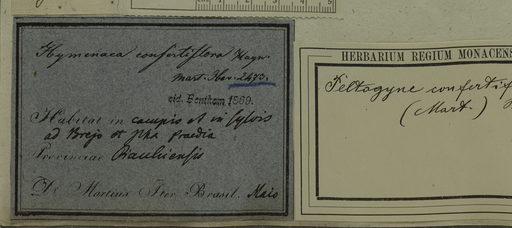 Hymenaea confertiflora Hayn.
Mart. Her. 2473.
vid. Bentham 1869.
Habitat in campis et in sylvis
ad Brejo et pha praedia
Provinciae Piauhiensis
Dr. Martius Iter Brasil. Maio
HERBARIUM REGIUM MONACENS
Peltogyne confertif
(Mart.)